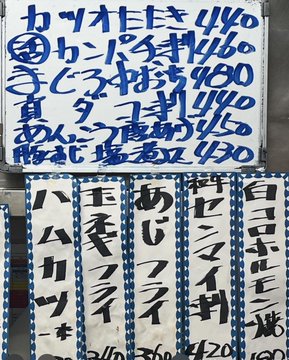 カツオたたき 440
カンパチ刺 460
まぐろ中おち 480
真ダコ刺 440
あんこう唐あげ 450
豚すじ塩煮込 430
白コロホルモン焼
センマイ刺 420
あじフライ 360
玉ネギフライ 340
ハムカツ 一本